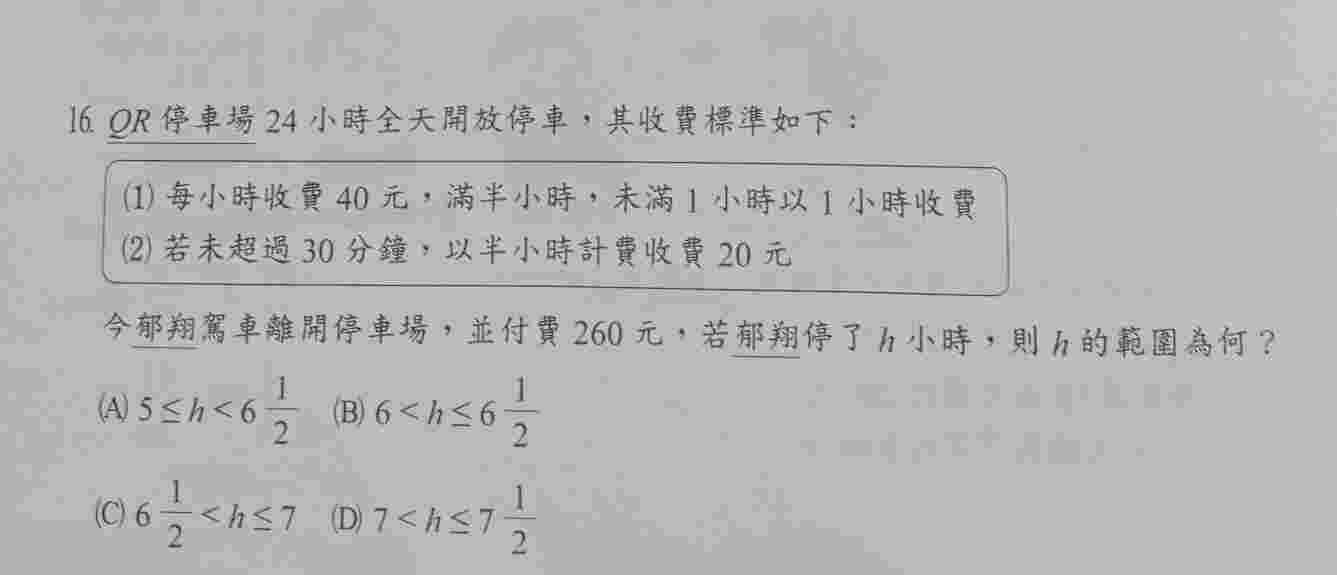 16. QR 停車場 24 小時全天開放停車，其收費標準如下：
(1) 每小時收費 40 元，滿半小時，未滿 1 小時以 1 小時收費
(2) 若未超過 30 分鐘，以半小時計費收費 20 元
今郁翔駕車離開停車場，並付費 260 元，若郁翔停了 h 小時，則 h 的範圍為何？
(A) 5 ≤ h < 6 1/2 (B) 6 < h ≤ 6 1/2
(C) 6 1/2 < h ≤ 7 (D) 7 < h ≤ 7 1/2